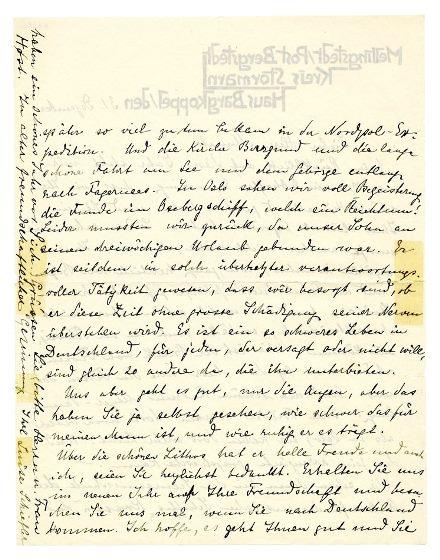 später so viel zu tun bekam in der Nordpol-Ex-
pedition. Und die Kirche Borgund und die lange
schöne Fahrt am See und dem Gebirge entlang
nach Fagernes. In Oslo sahen wir voll Begeisterung
die Funde im Osebergschiff, welch ein Reichtum!
Leider mussten wir zurück, da unser Sohn an
seinen dreiwöchigen Urlaub gebunden war. Er
ist seitdem in solch überhetzter verantwortungs-
voller Tätigkeit gewesen, dass wir besorgt sind, ob
er diese Zeit ohne grosse Schädigung seiner Nerven
überstehen wird. Es ist ein so schweres Leben in
Deutschland, für jeden, der versagt oder nicht will,
sind gleich 20 andere da, die ihn unterbieten.
Uns aber geht es gut, nur die Augen, aber das
haben Sie ja selbst gesehen, wie schwer das für
meinen Mann ist, und wie ruhig er es trägt.
Über die schönen Lithos hat er helle Freude und auch
ich, seien Sie herzlichst bedankt. Erhalten Sie uns
im neuen Jahr auch Ihre Freundschaft und besu-
chen Sie uns mal, wenn Sie nach Deutschland
kommen. Ich hoffe, es geht Ihnen gut und Sie
haben ein schönes Jahr vor sich. Grüssen Sie bitte Herrn u. Frau
Høst. In alter freundschaftlicher Ihre Luise Schiefler
Mellingstedt Post Bergstedt
Kreis Stormarn
Haus Bargkoppel/den 31. Dezember